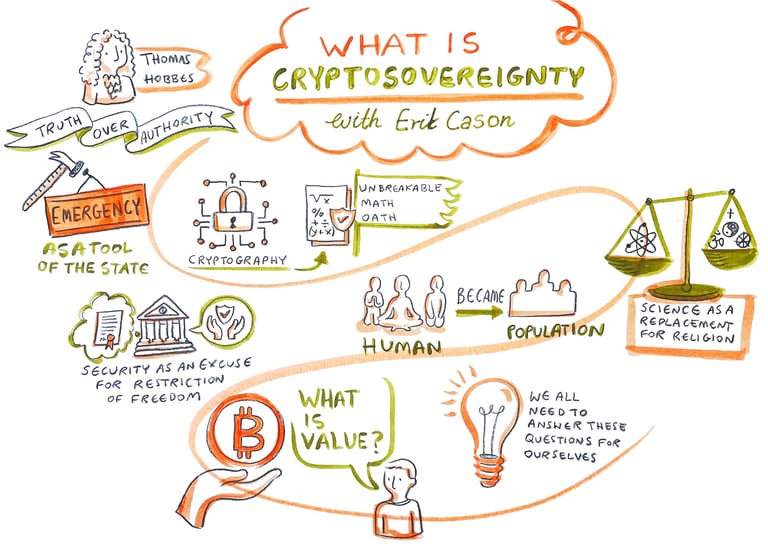 WHAT IS
CRYPTOSOVEREIGNTY
with Erik Cason
THOMAS
HOBBES
TRUTH OVER AUTHORITY
EMERGENCY
AS A TOOL
OF THE STATE
CRYPTOGRAPHY
√x
%
+÷
(y+x)
UNBREAKABLE
MATH
OATH
SCIENCE AS A
REPLACEMENT
FOR RELIGION
HUMAN
BECAME
POPULATION
SECURITY AS AN EXCUSE
FOR RESTRICTION
OF FREEDOM
WHAT
IS
VALUE?
WE ALL
NEED TO
ANSWER THESE
QUESTIONS FOR
OURSELVES